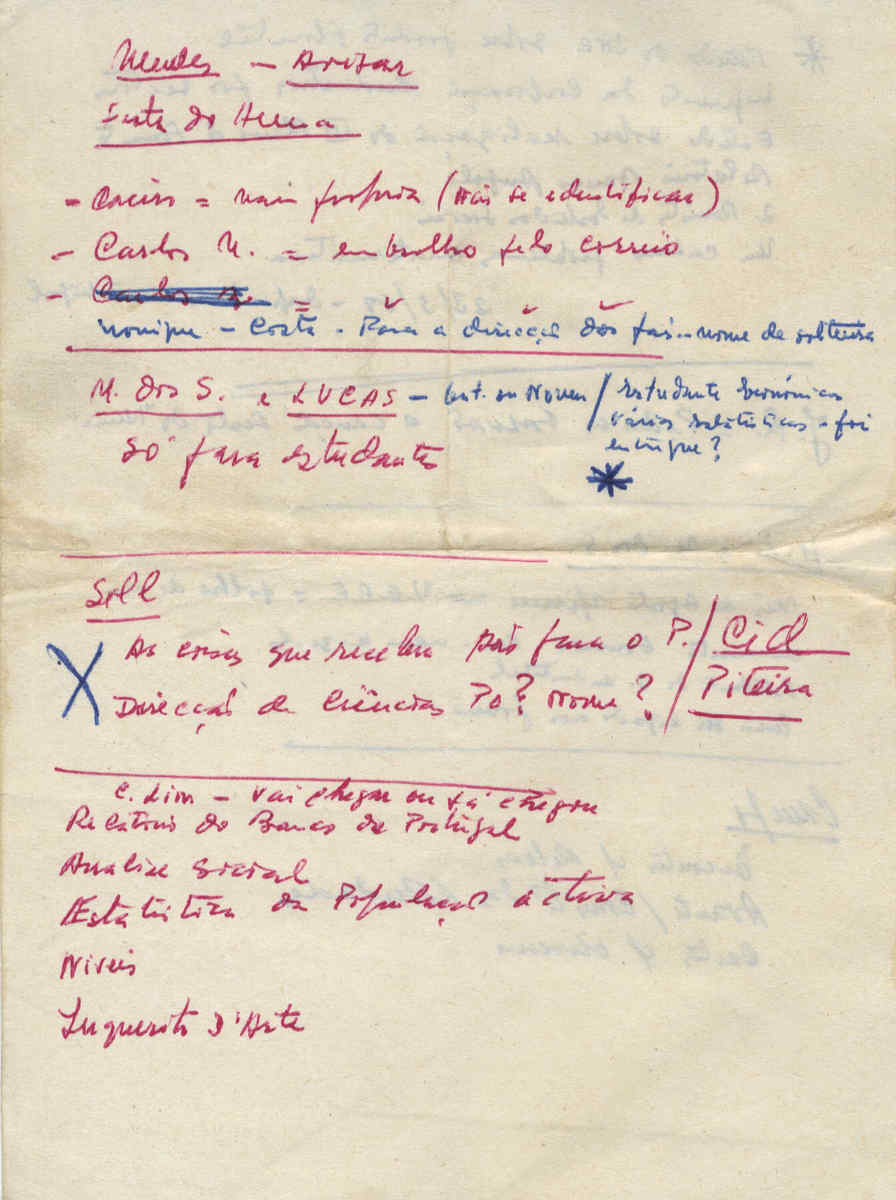 Mendes — Avisar
do
- = vai (não se identificar)
- Carlos M. = embrulho pelo correio
- =
Monique — Costa - Para a direcção dos pais - nome de solteira
M. dos S. e LUCAS — ou Novem / estudante Económicas
várias estatísticas - foi
entregue?
Só para estudantes
Sill
As coisas que receba pás para o P. / Cid
Direcção de Ciências Po? Nome? / Piteira
C. Lion — vai chegar ou já chegou
Relatório do Banco de Portugal
Analise Social
Estatística da População activa
Niveis
Inquerito d'Arte